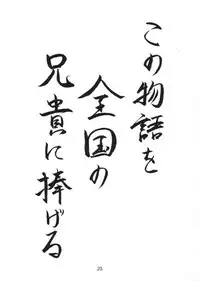 この物語を
全国の
兄貴に捧げる
28